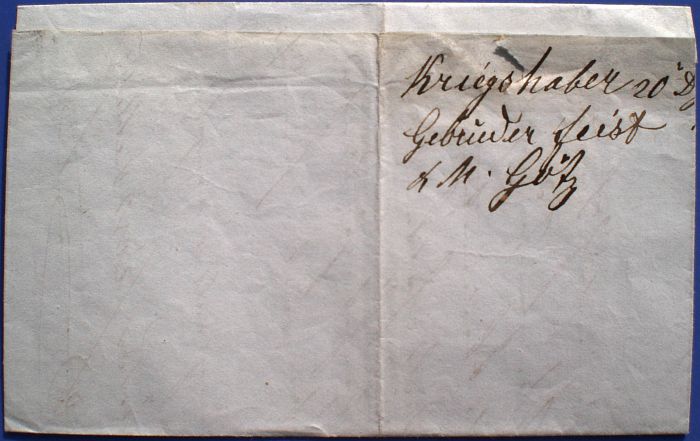 Kriegshaber 20
Gebrüder Feist
& M. Götz